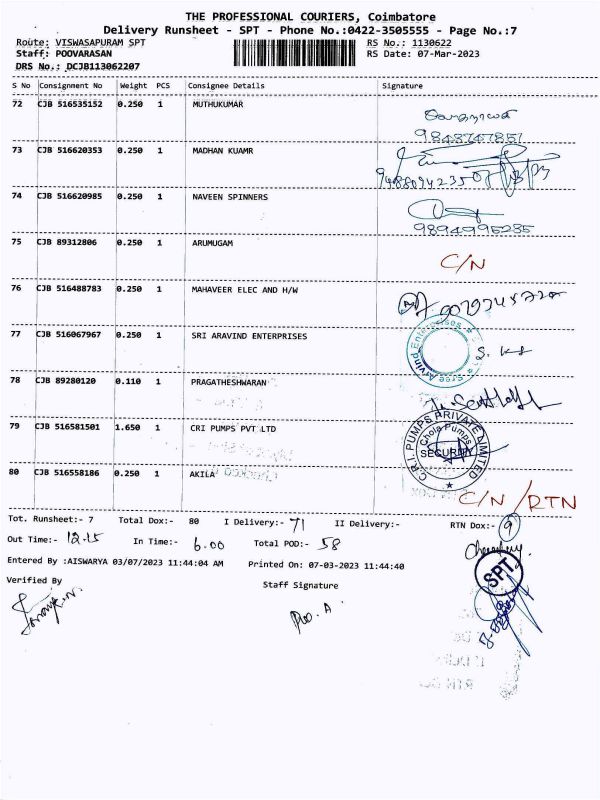 THE PROFESSIONAL COURIERS, Coimbatore
Delivery Runsheet - SPT - Phone No.:0422-3505555 - Page No.:7
Route: VISWASAPURAM SPT RS No.: 1130622
Staff: POOVARASAN RS Date: 07-Mar-2023
DRS No.: DCJB113062207
S No Consignment No Weight PCS Consignee Details Signature
72 CJB 516535152 0.250 1 MUTHUKUMAR
9843747851
73 CJB 516620353 0.250 1 MADHAN KUAMR
9488094235
74 CJB 516620985 0.250 1 NAVEEN SPINNERS
9894995235
75 CJB 89312806 0.250 1 ARUMUGAM C/N
76 CJB 516488783 0.250 1 MAHAVEER ELEC AND H/W
77 CJB 516067967 0.250 1 SRI ARAVIND ENTERPRISES
Sree Arvind Enterprises
78 CJB 89280120 0.110 1 PRAGATHESHWARAN
79 CJB 516581501 1.650 1 CRI PUMPS PVT LTD
C.R.I. PUMPS PRIVATE LIMITED
Chola Pumps
SECURITY
80 CJB 516558186 0.250 1 AKILA C/N /RTN
Tot. Runsheet:- 7 Total Dox:- 80 I Delivery:- 71 II Delivery:- RTN Dox:- 9
Out Time:- 12.15 In Time:- 6.00 Total POD:- 58
Entered By :AISWARYA 03/07/2023 11:44:04 AM Printed On: 07-03-2023 11:44:40
Verified By Staff Signature
SPT
Poo. A.